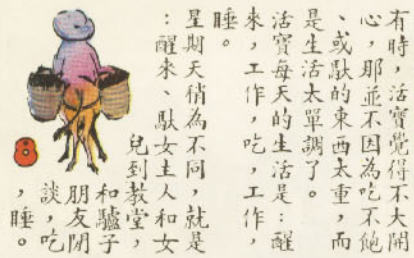 有時，活寶覺得不大開
心，那並不因為吃不飽
、或馱的東西太重，而
是生活太單調了。
活寶每天的生活是：醒
來，工作，吃，工作，
睡。
星期天稍為不同，就是
：醒來、馱女主人和女
兒到教堂，
和驢子
朋友閒
談，吃
，睡。
8